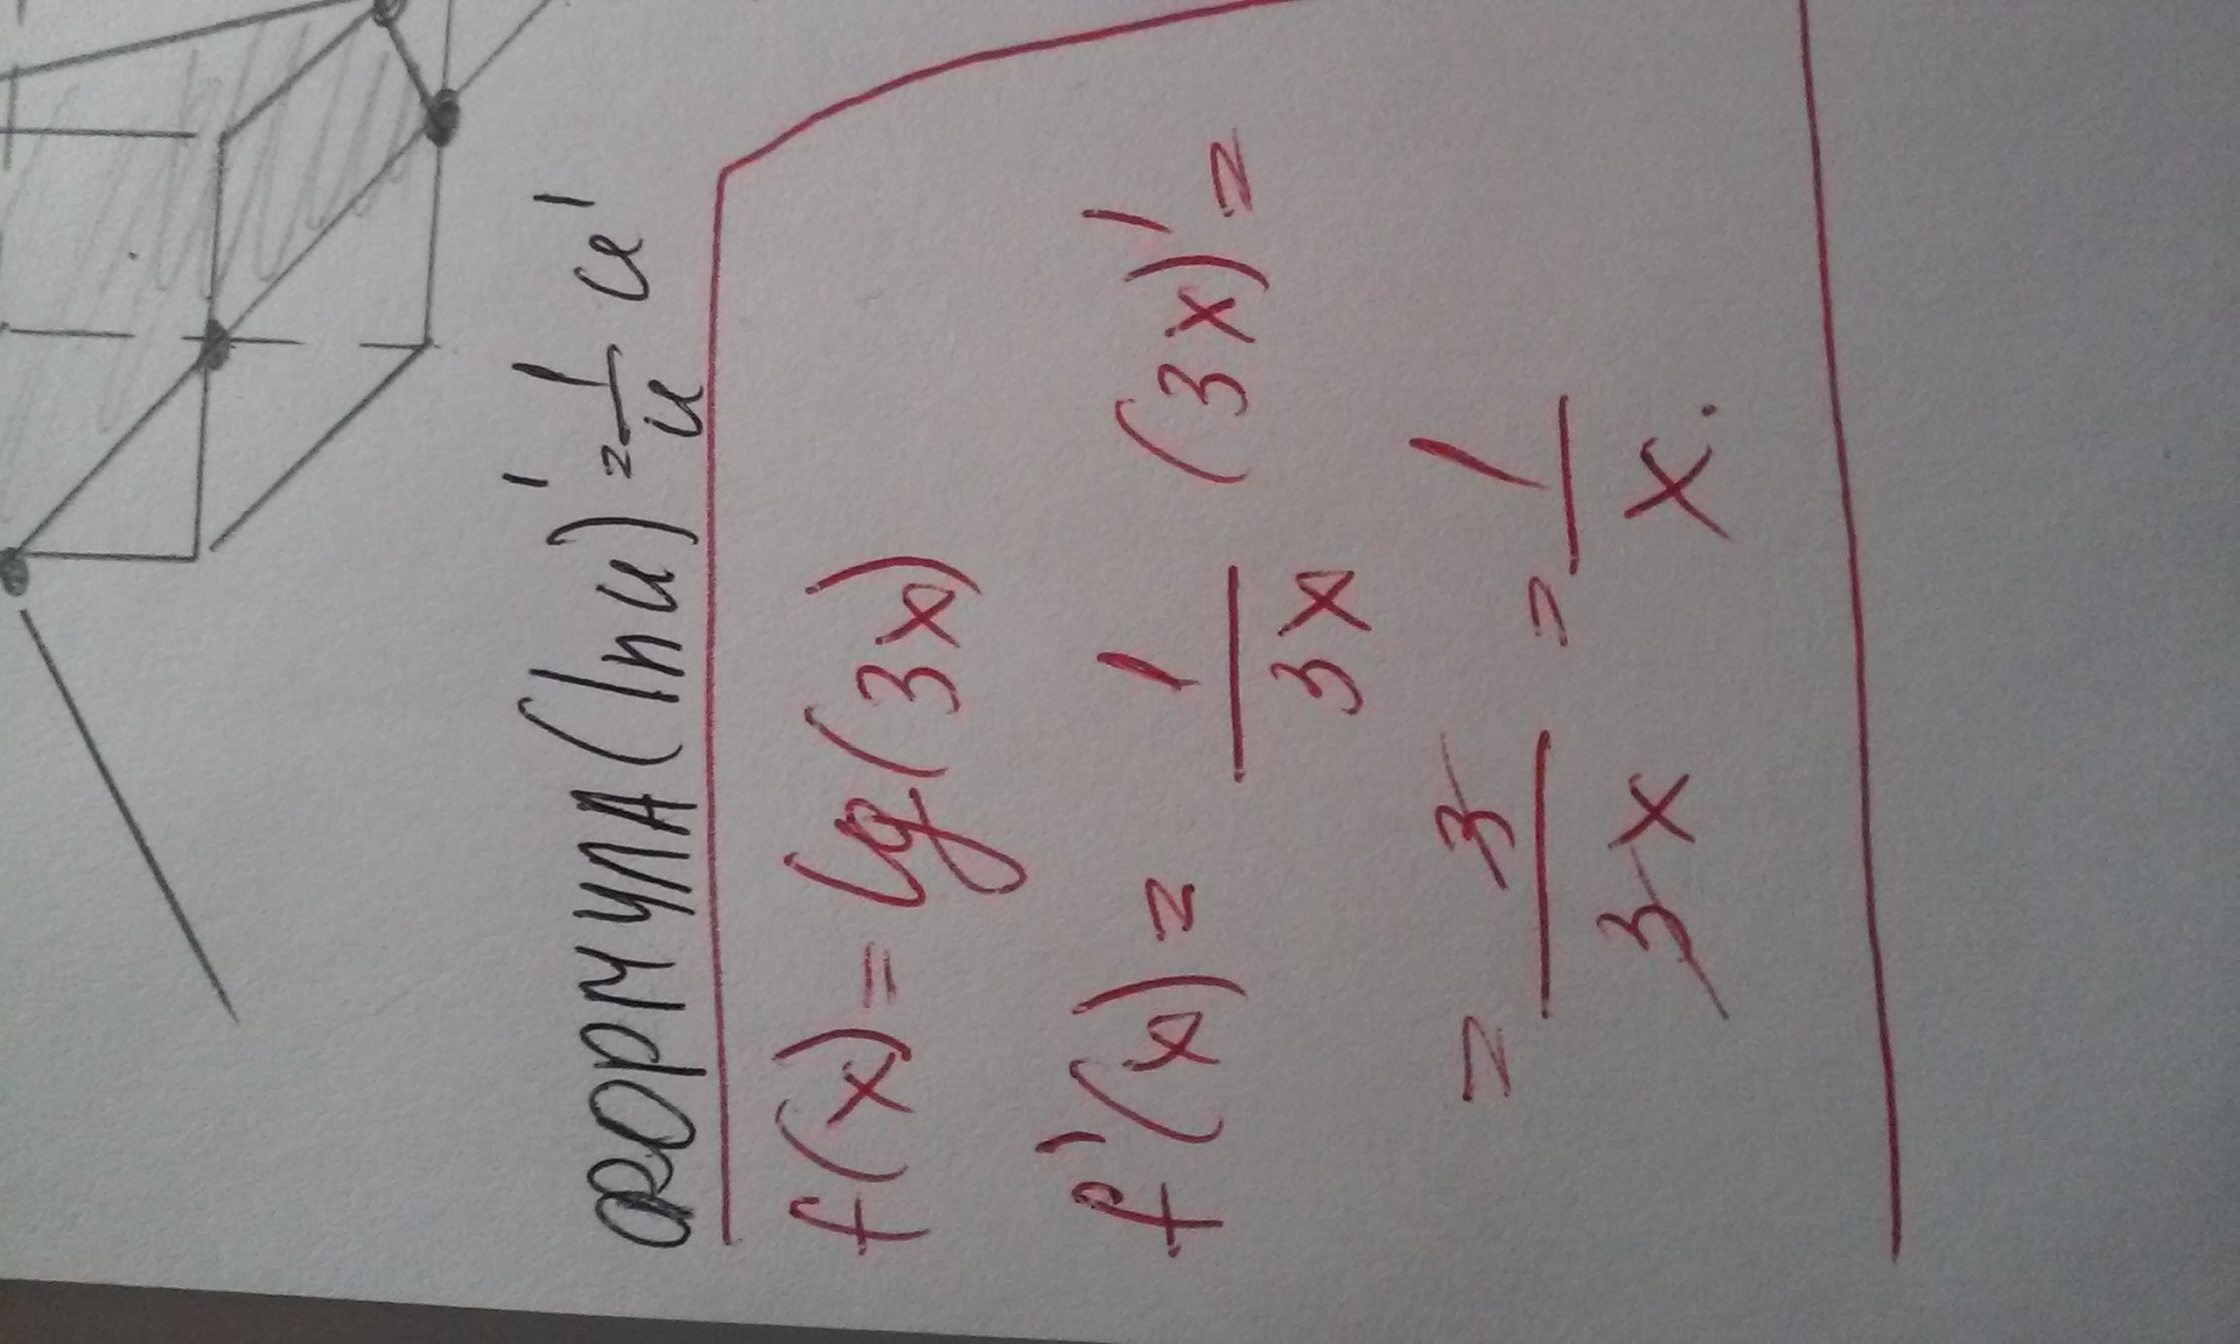 ФОРМУЛА (ln u)' = 1/u u'
f(x) = lg(3x)
f'(x) = 1/3x (3x)' =
= 3/3x = 1/x.